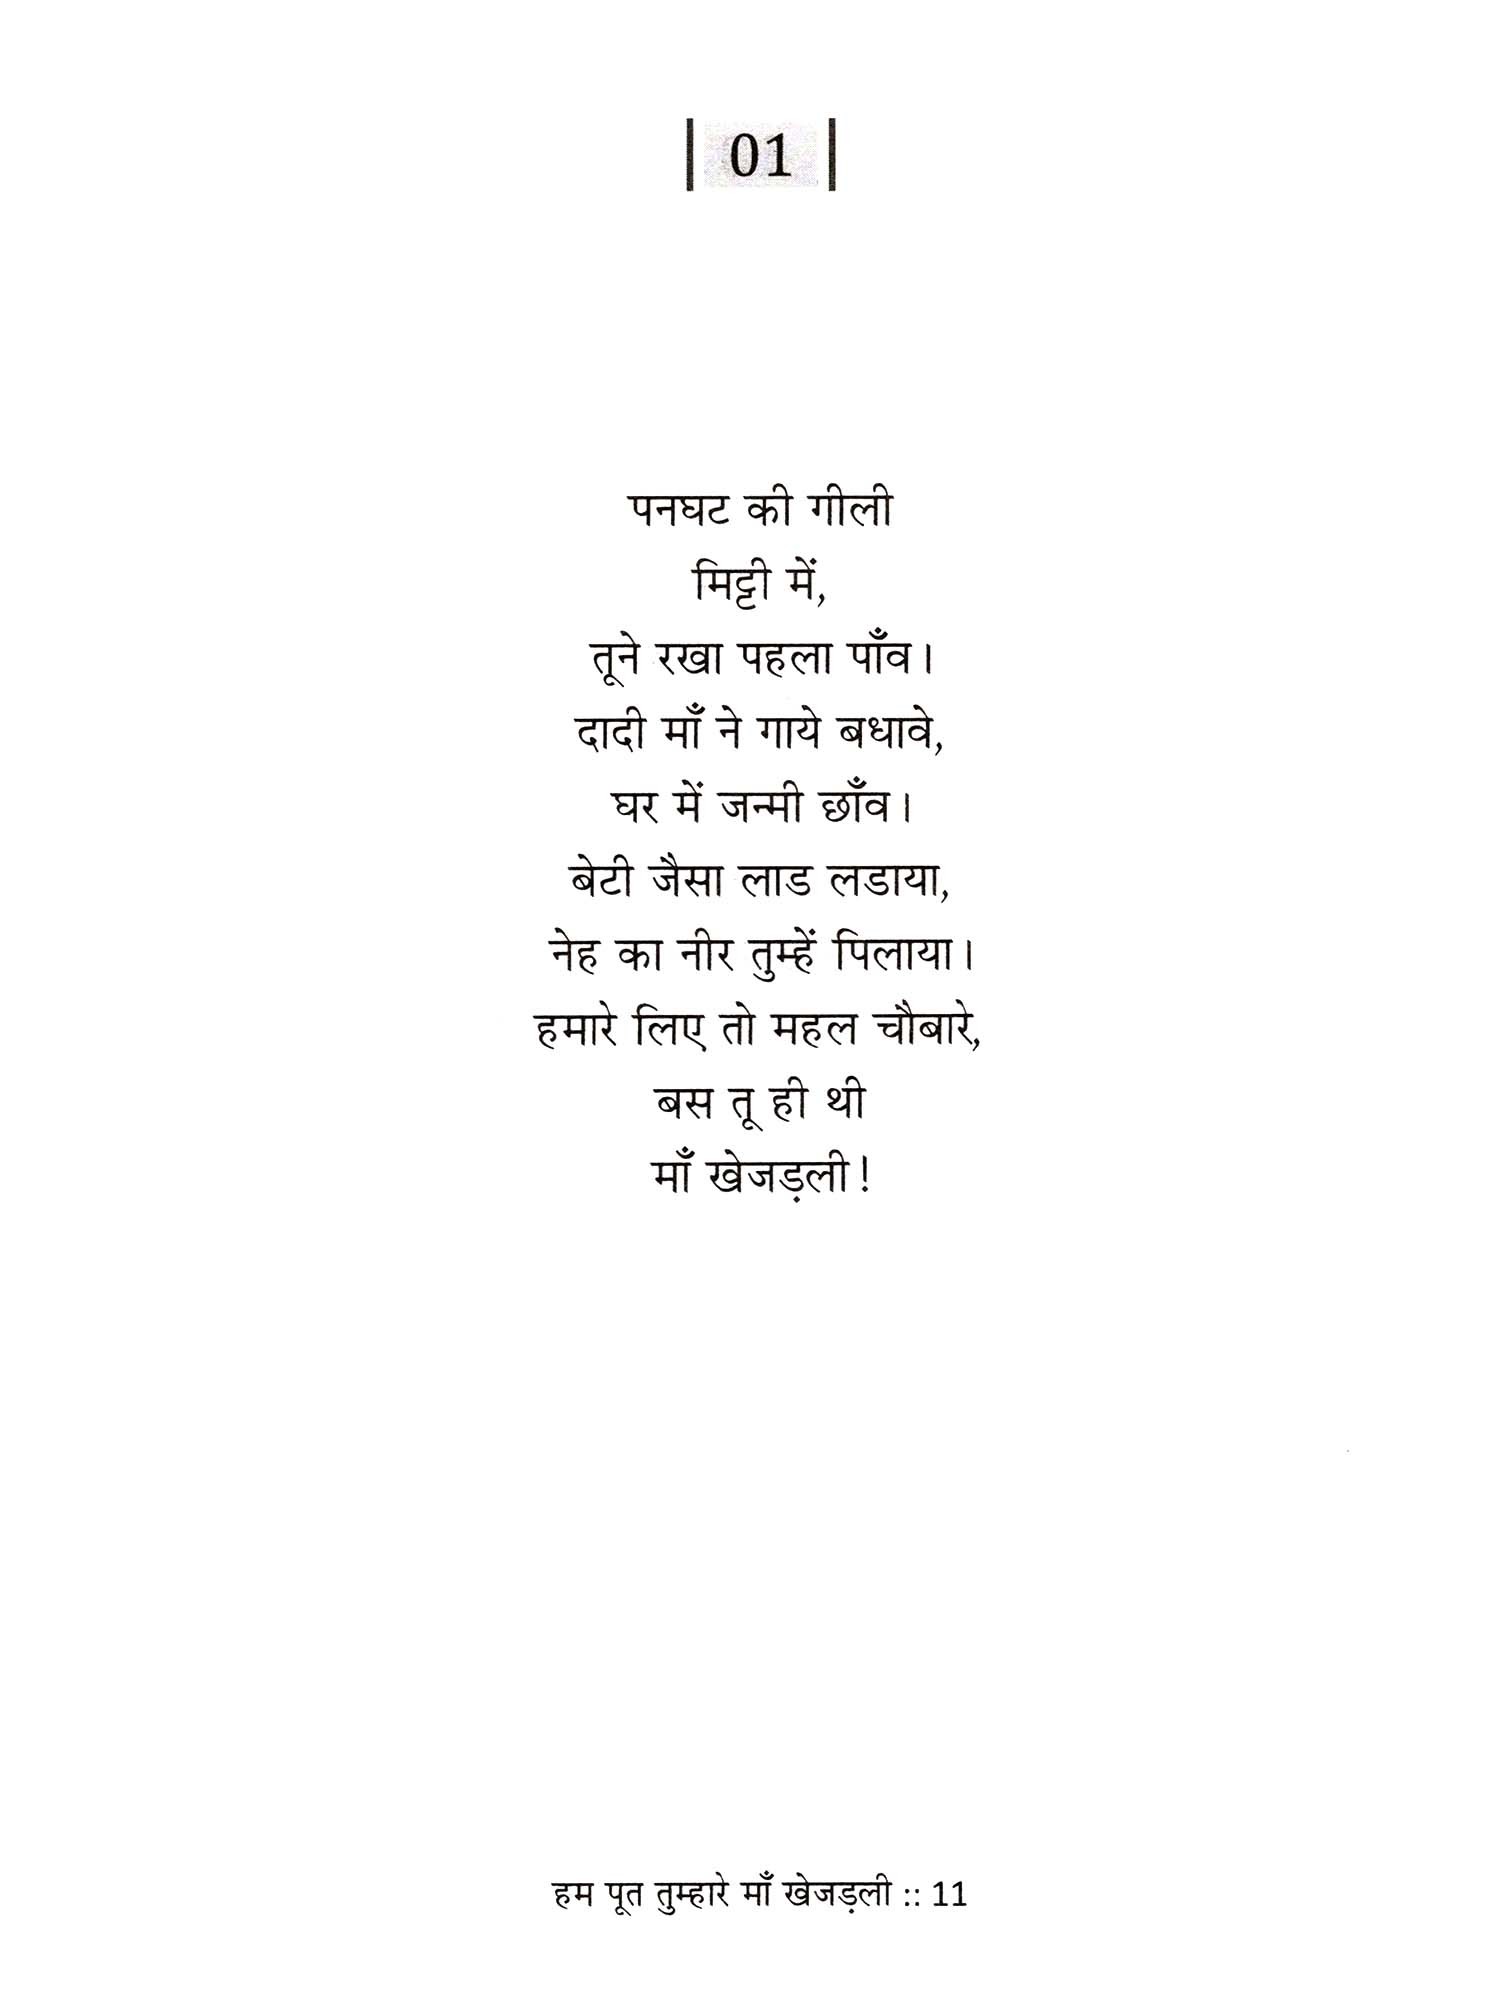 01
पनघट की गीली
मिट्टी में,
तूने रखा पहला पाँव।
दादी माँ ने गाये बधावे,
घर में जन्मी छाँव।
बेटी जैसा लाड लडाया,
नेह का नीर तुम्हें पिलाया।
हमारे लिए तो महल चौबारे,
बस तू ही थी
माँ खेजड़ली!
हम पूत तुम्हारे माँ खेजड़ली :: 11